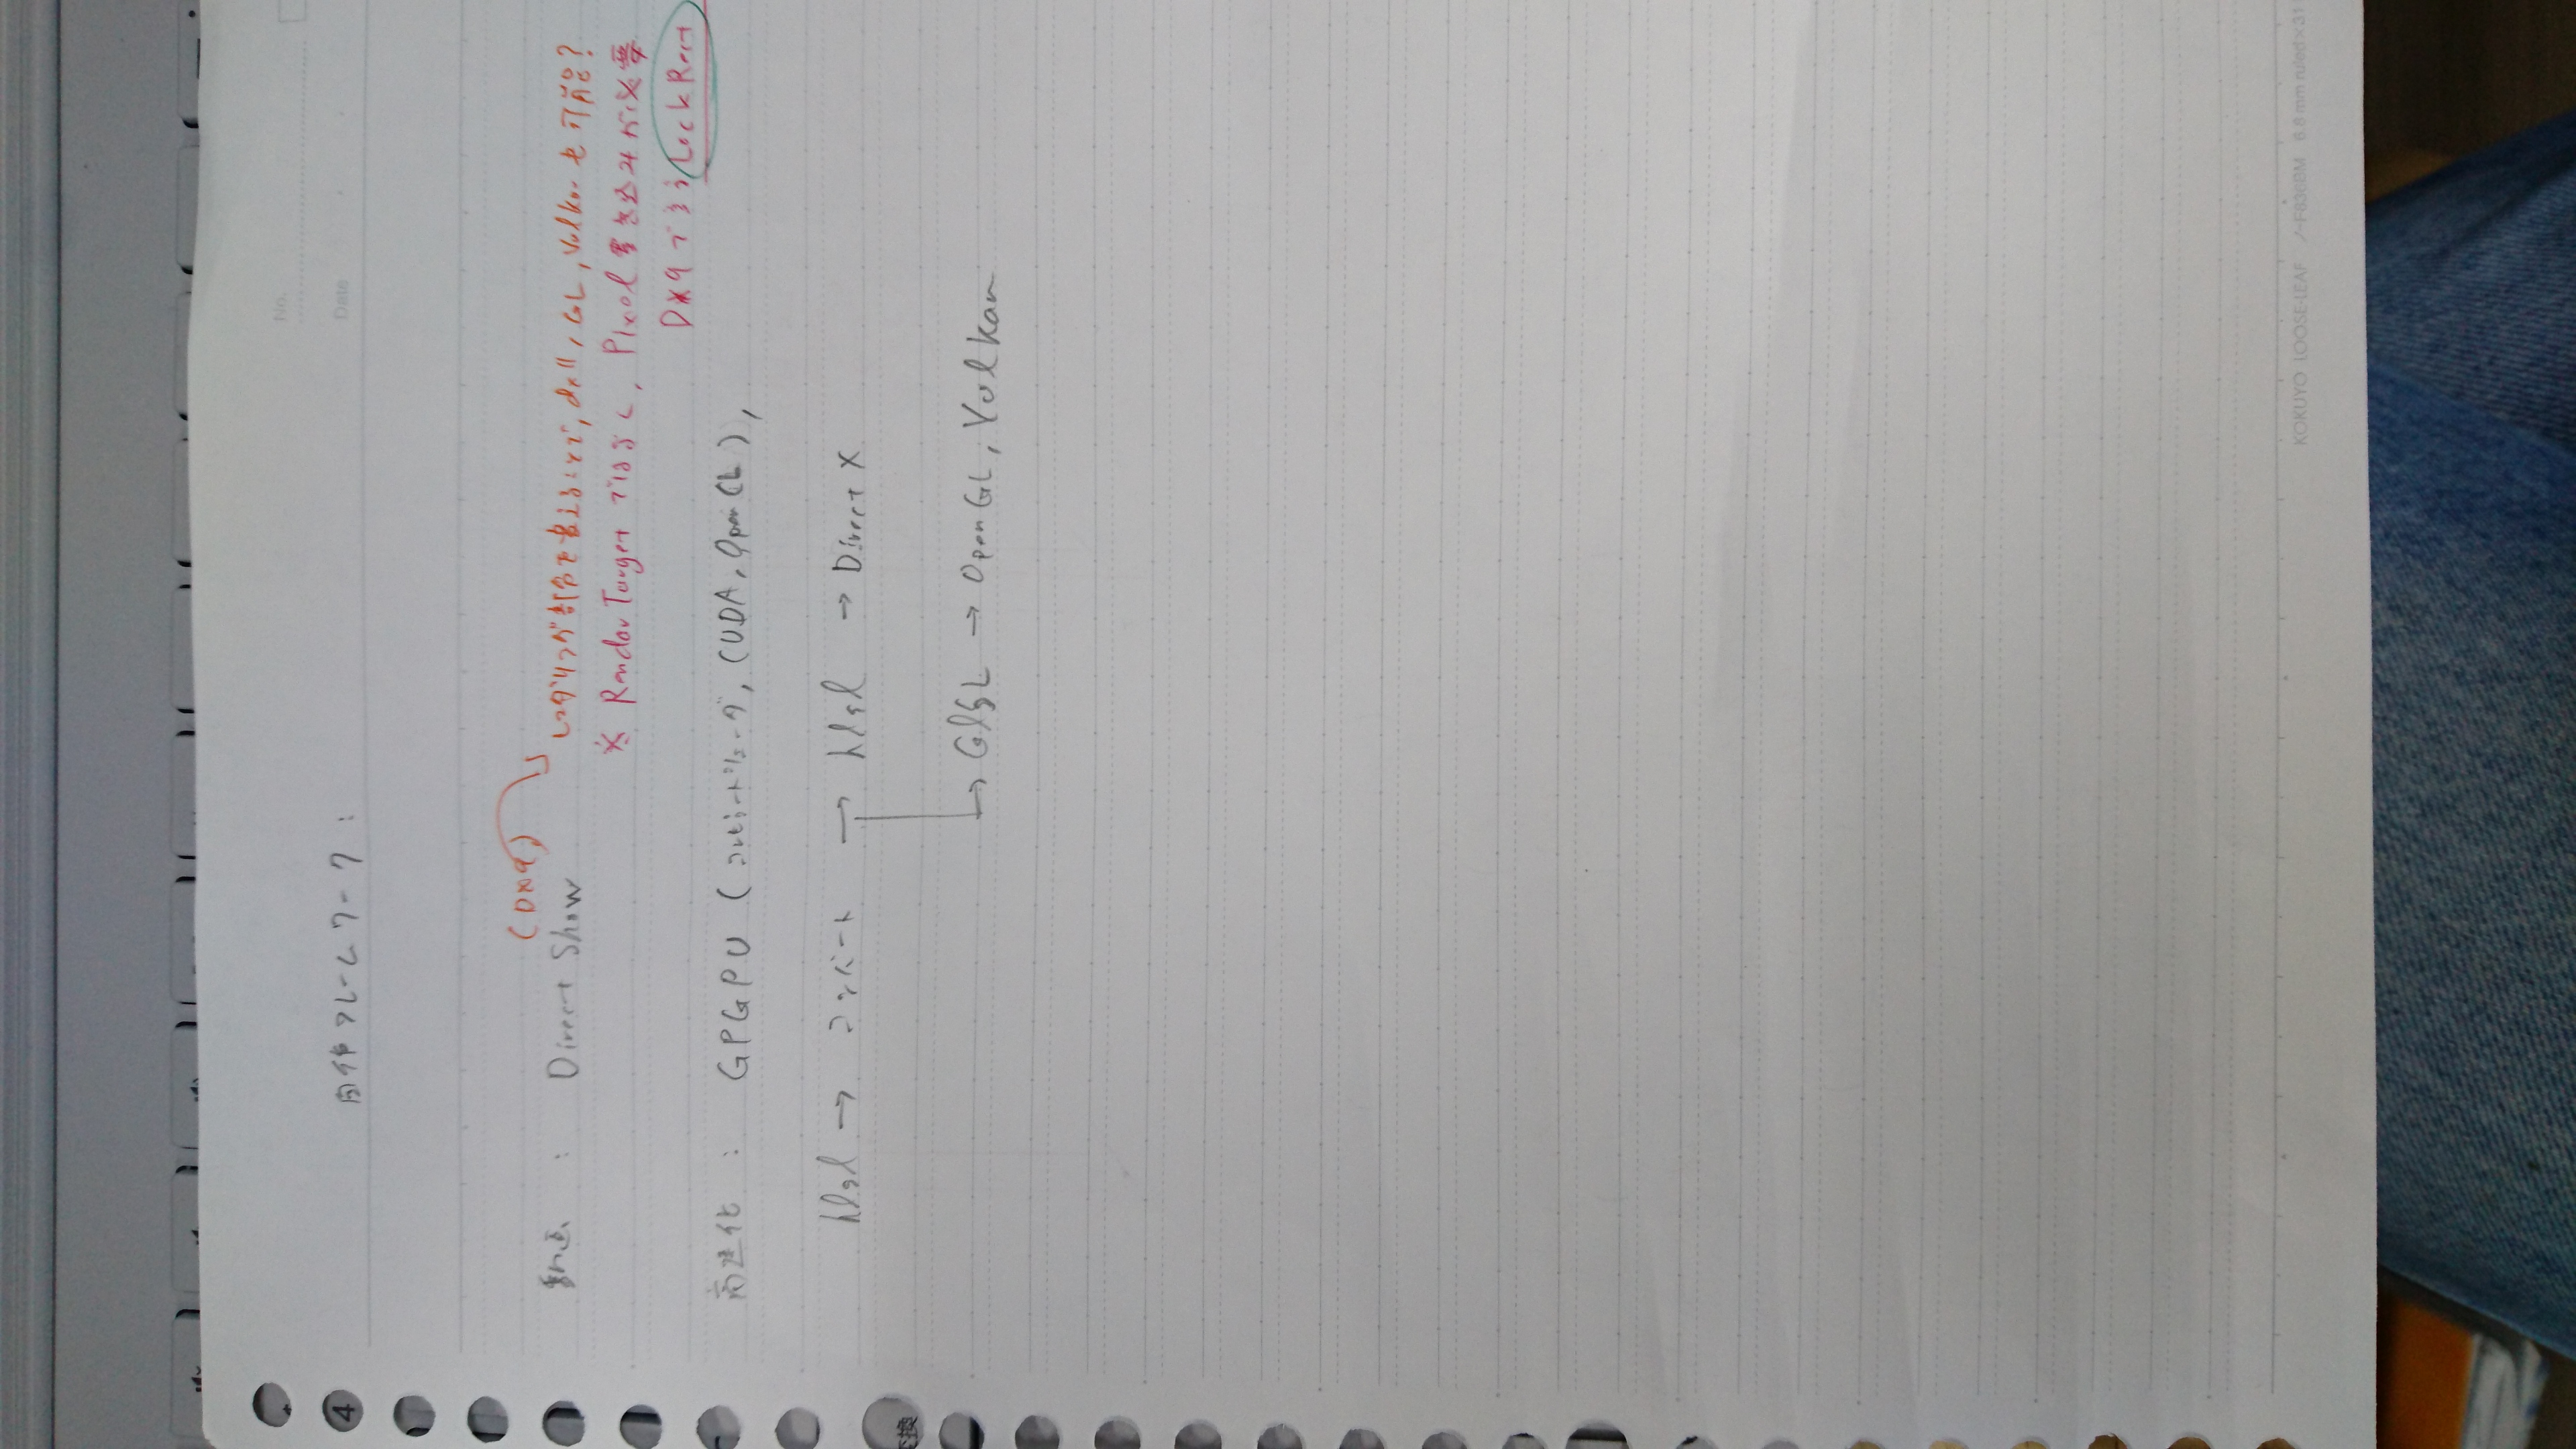 No.
Date
自作フレームワーク:
(DX9)
動画 : Direct Show
レンダリング部分を替えることで, dx11, GL, Vulkanも可能?
※ Render Targetではなく、Pixel書き込みが必要
DX9でき3 LockRect
高速化 : GPGPU (コンピュートシェーダ, CUDA, OpenCL),
hlsl → コンバート → hlsl → Direct X
→ GlSL → OpenGL, Vulkan
KOKUYO LOOSE-LEAF ノ-F836BM 6.8 mm ruled×31
4
変換